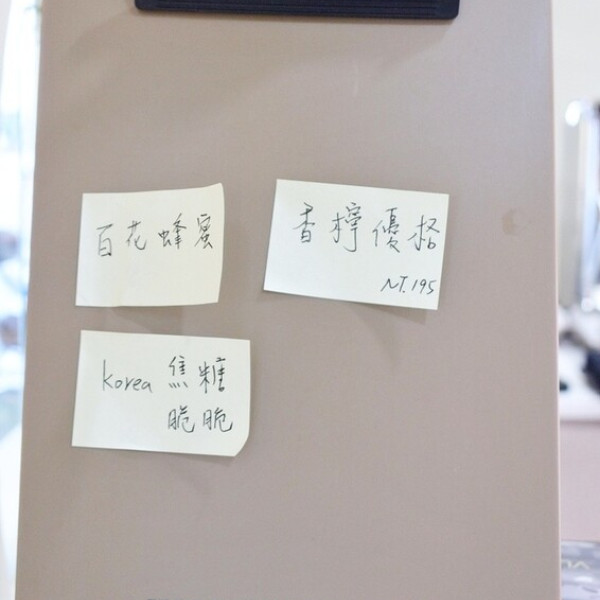 百花蜂蜜
香檸優格
NT.195
korea 焦糖
脆脆